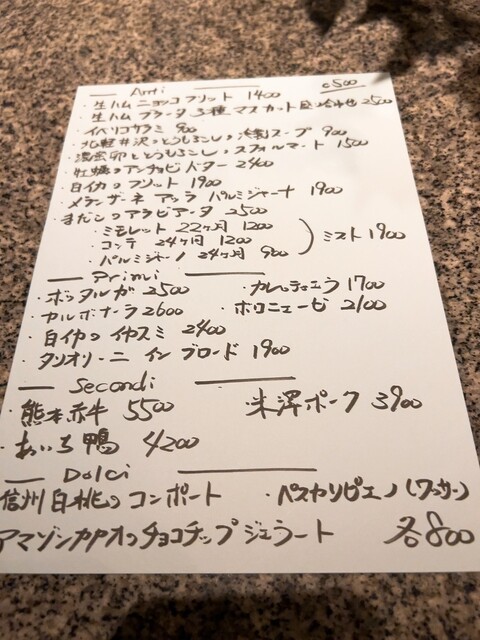 Anti c500
・生ハム ニョッコフリット 1400
・生ハム ブラータ 3種マスカット 盛り合わせ 2500
・イベリコサラミ 900
・北軽井沢のとうもろこしの冷製スープ 900
・温泉卵ととうもろこしのスフォルマート 1500
・牡蠣のアンチョビバター 2400
・白イカのフリット 1900
・メランザーネ アッラ パルミジャーナ 1900
・まだこのアラビアータ 2500
・ミモレット 22ヶ月 1200
・コンテ 24ヶ月 1200 ミスト 1900
・パルミジャーノ 24ヶ月 900
Primi
・ボッタルガ 2500 ・カレッティエラ 1700
・カルボナーラ 2600 ・ボロニェーゼ 2100
・白イカの イカスミ 2400
・タリオリーニ イン ブロード 1900
Secondi
・熊本赤牛 5500 ・米澤ポーク 3900
・あいち鴨 4200
Dolci
信州白桃のコンポート ・ペスカリピエノ(ワッサー)
アマゾンカカオのチョコチップジェラート 各800